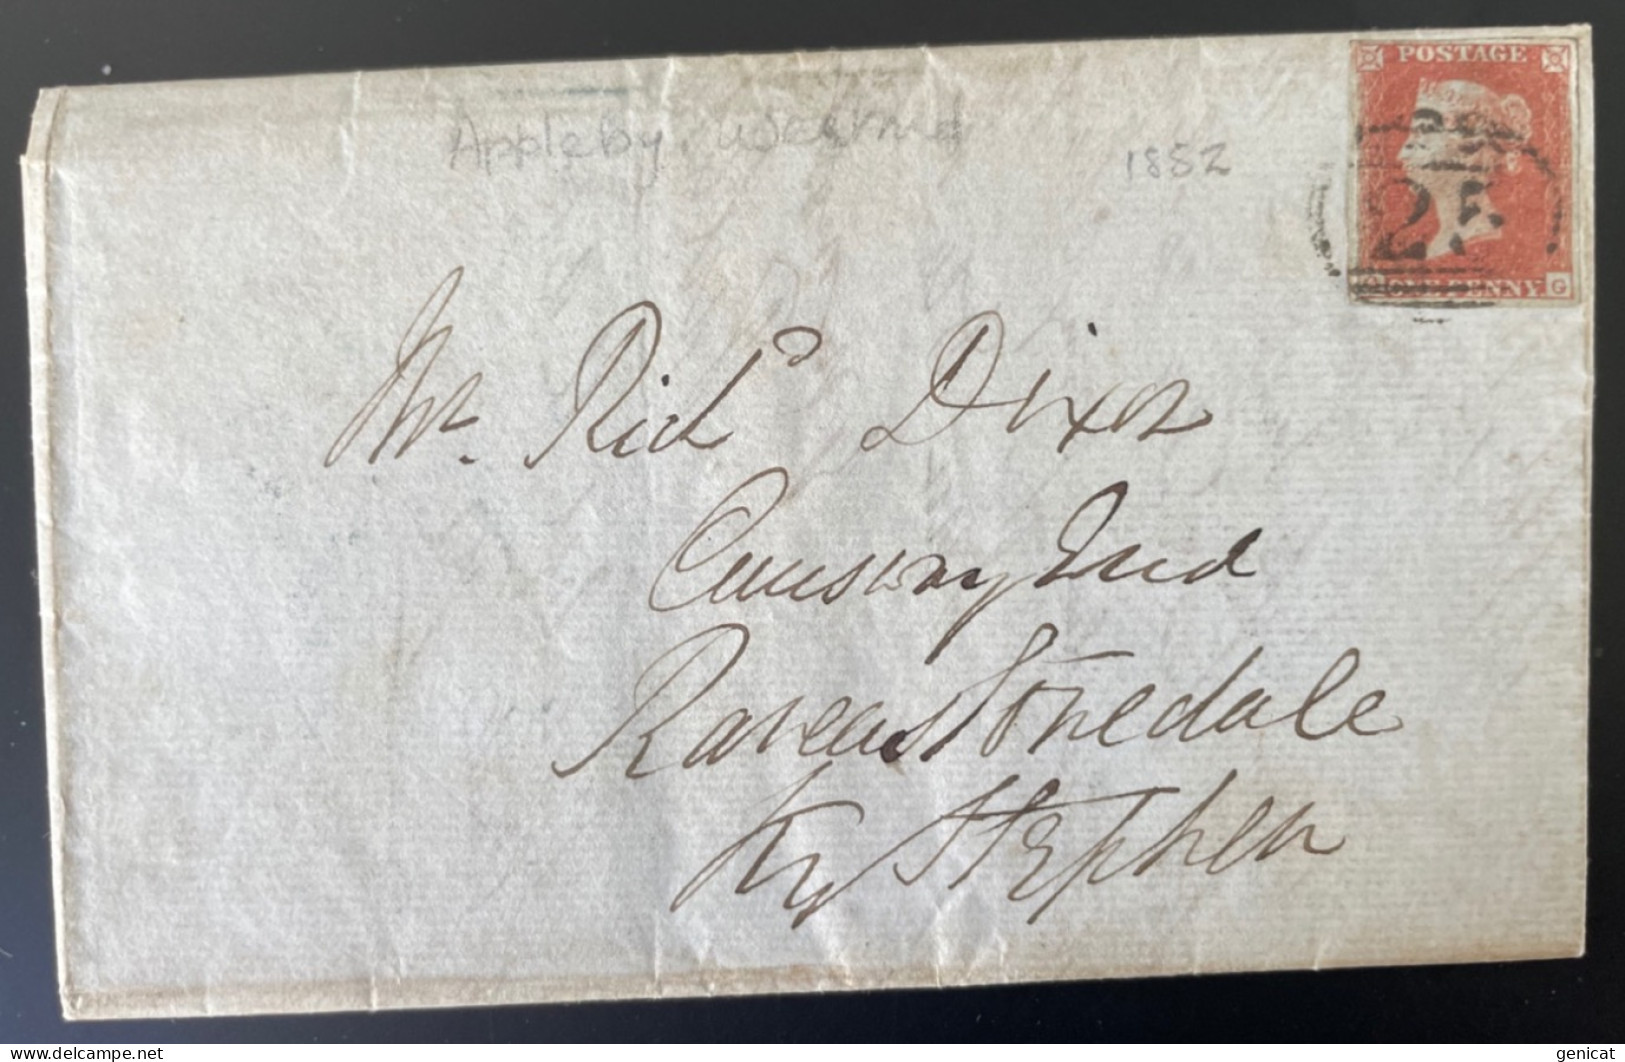 POSTAGE
Appleby. Westmd
1852
25
ONE PENNY G
Mr. Richd Dixon
Causway End
Ravenstonedale
Ky Stephen
delcampe.net
genicat